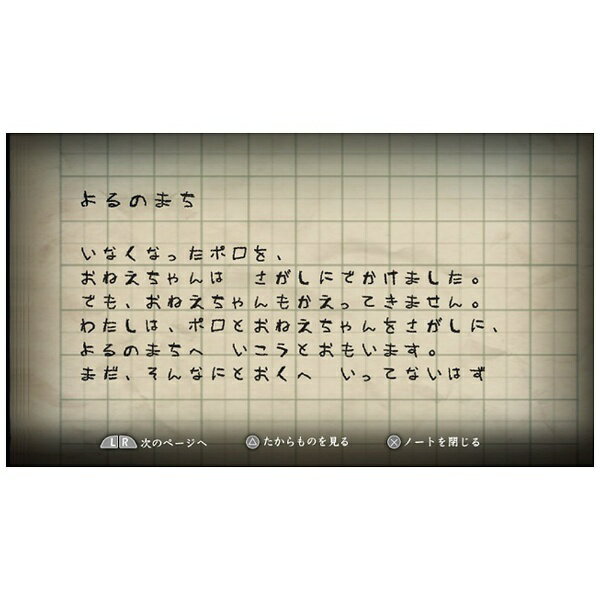 よるのまち
いなくなったポロを、
おねえちゃんは　さがしにでかけました。
でも、おねえちゃんもかえってきません。
わたしは、ポロとおねえちゃんをさがしに、
よるのまちへ　いこうとおもいます。
まだ、そんなにとおくへ　いってないはず
L R 次のページへ　△ たからものを見る　× ノートを閉じる